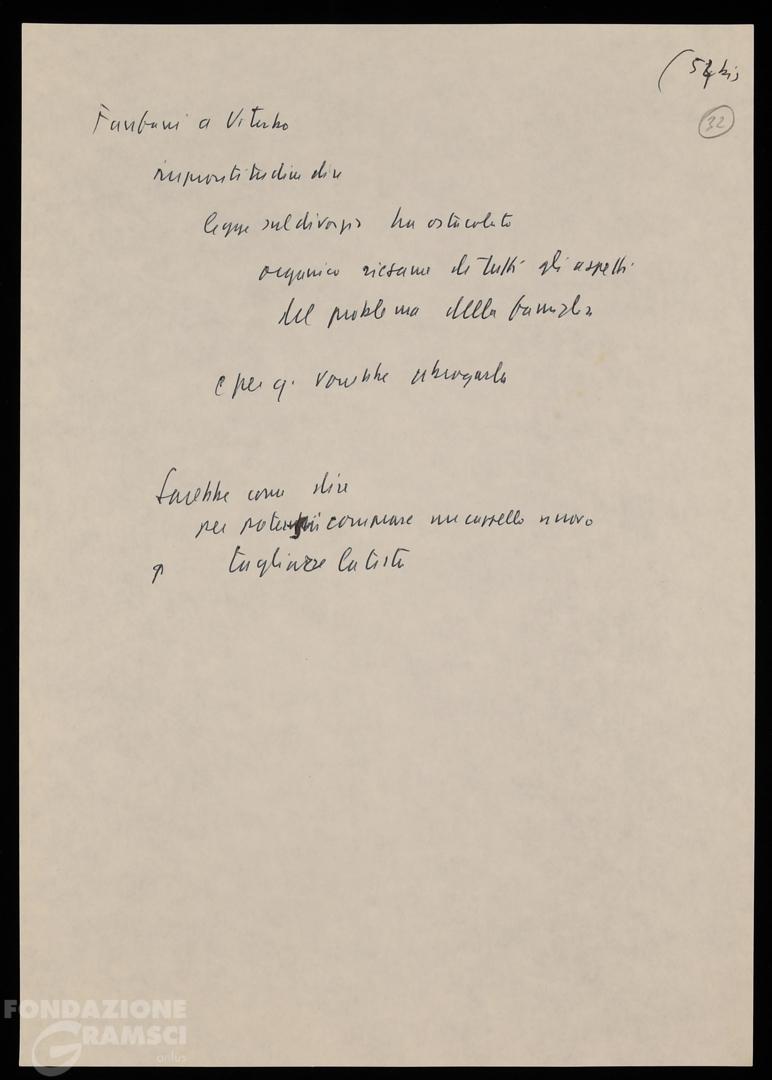 (54 bis
32
Fanfani a Viterbo
improntitudine dire
legge sul divorzio ha ostacolato
organico riesame di tutti gli aspetti
del problema della famiglia
e per q. vorrebbe abrogarla
Sarebbe come dire
per potersi comprare un cappello nuovo
tagliare la testa
FONDAZIONE
GRAMSCI
onlus